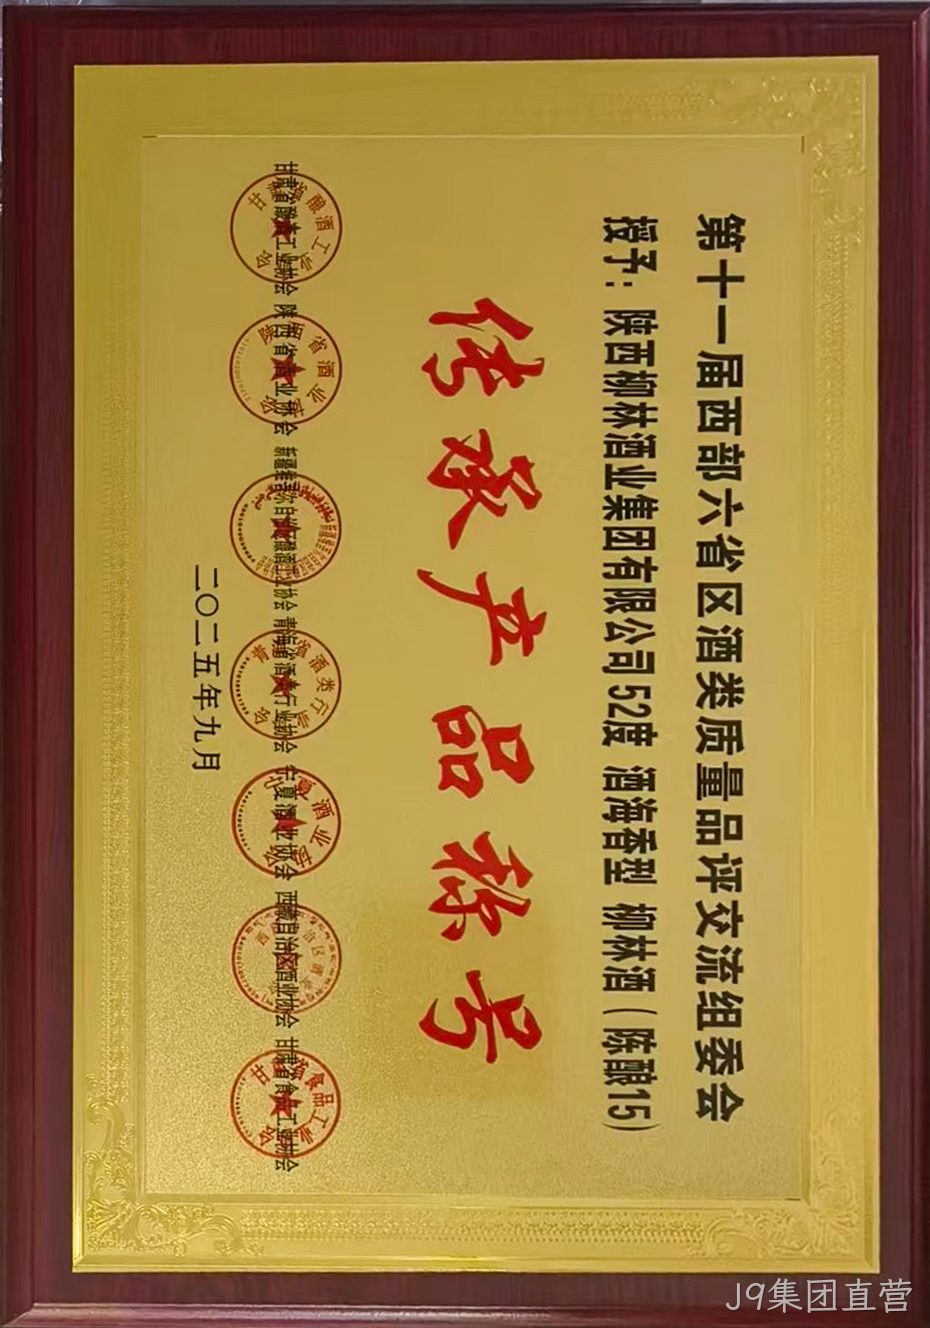 第十一届西部六省区酒类质量品评交流组委会
授予：陕西柳林酒业集团有限公司52度 酒海香型 柳林酒（陈酿15）
传承产品称号
甘肃省酿酒工业协会 陕西省酒业协会 新疆维吾尔自治区酿酒工业协会 青海省酒类行业协会 宁夏酒业协会 西藏自治区酒业协会 甘肃省食品工业协会
二〇二五年九月
J9集团直营